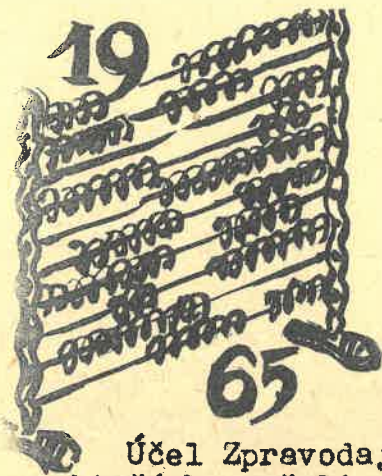 19
65
Účel Zpravoda